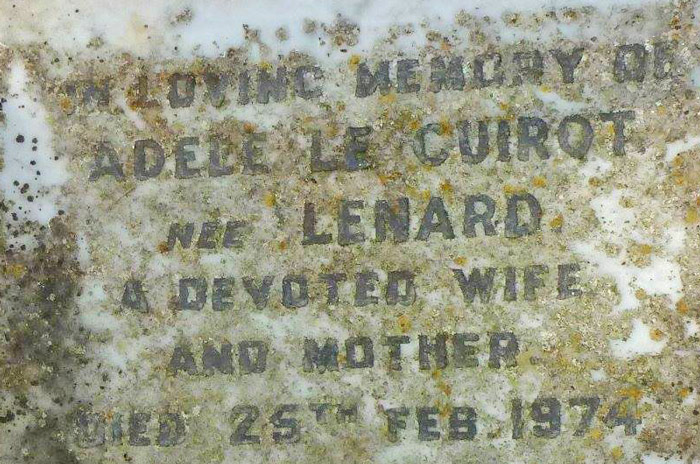 IN LOVING MEMORY OF
ADELE LE CUIROT
NEE LENARD
A DEVOTED WIFE
AND MOTHER
DIED 25TH FEB 1974